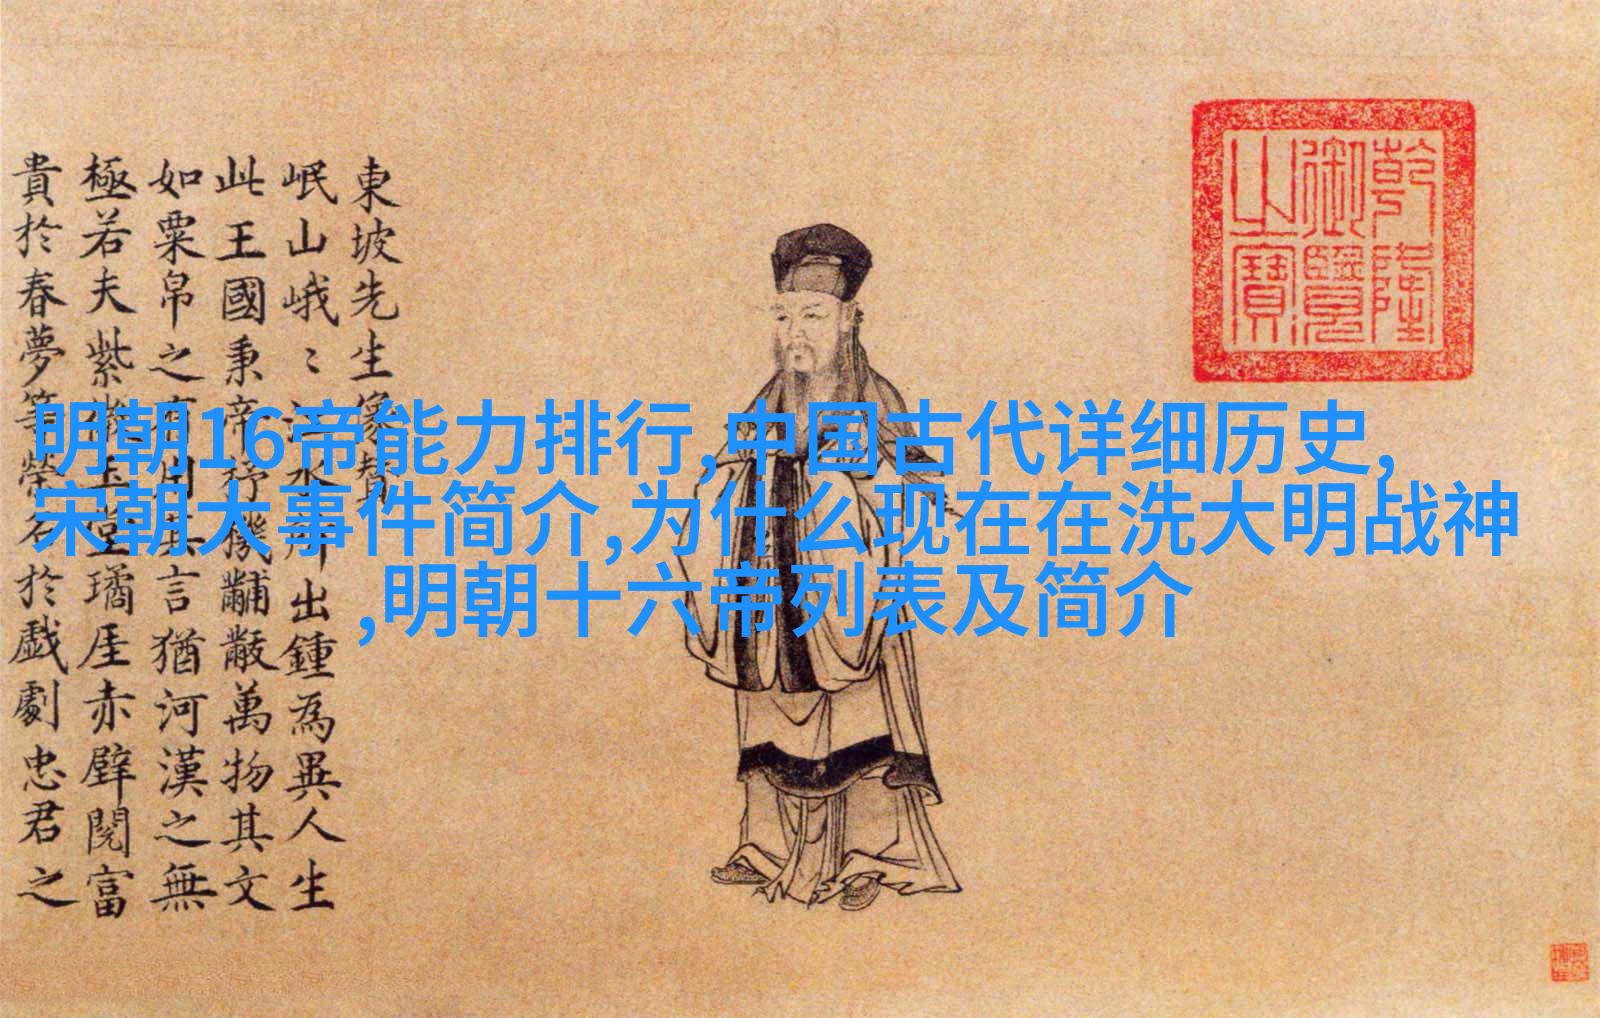 東坡先生像贊
岷山峨〻江水所出鍾為異人生
此王國秉帝杼機黼黻萬物其文
如粟帛之有用其言猶河漢之無
極若夫紫微玉堂璚厓赤壁閱富
貴於春夢等榮名於戲劇忠君之
乾隆
御覽
之寶
明朝16帝能力排行,中国古代详细历史,
宋朝大事件简介,为什么现在在洗大明战神
,明朝十六帝列表及简介